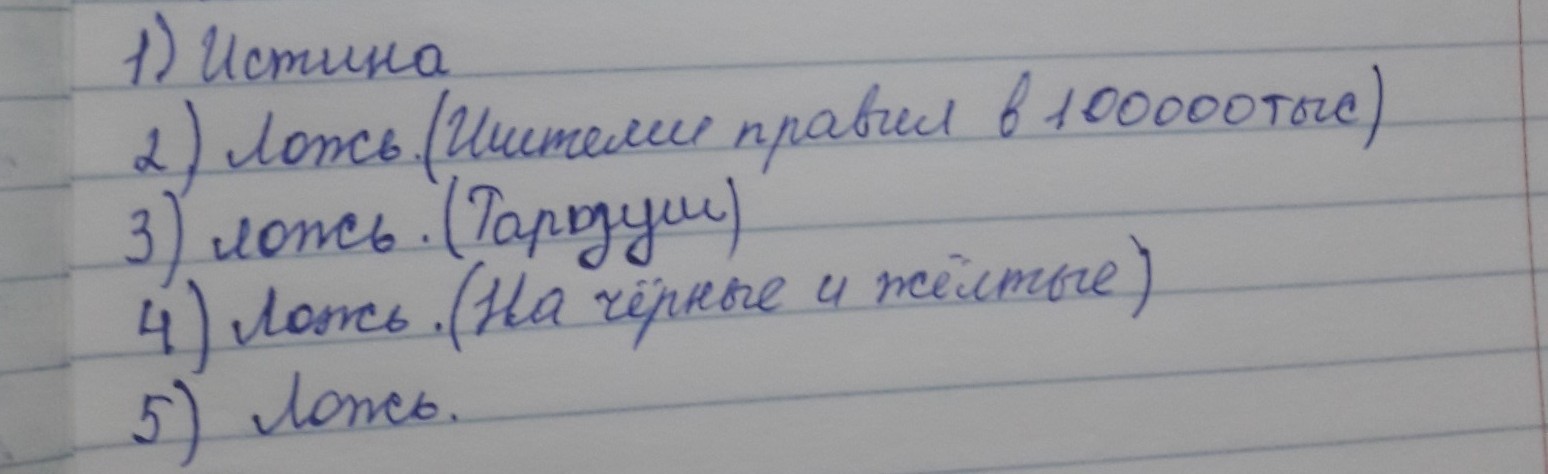 1) Истина
2) Ложь. (Иштеми правил в 100000тыс)
3) ложь. (Тардуш)
4) Ложь. (На чёрные и жёлтые)
5) Ложь.